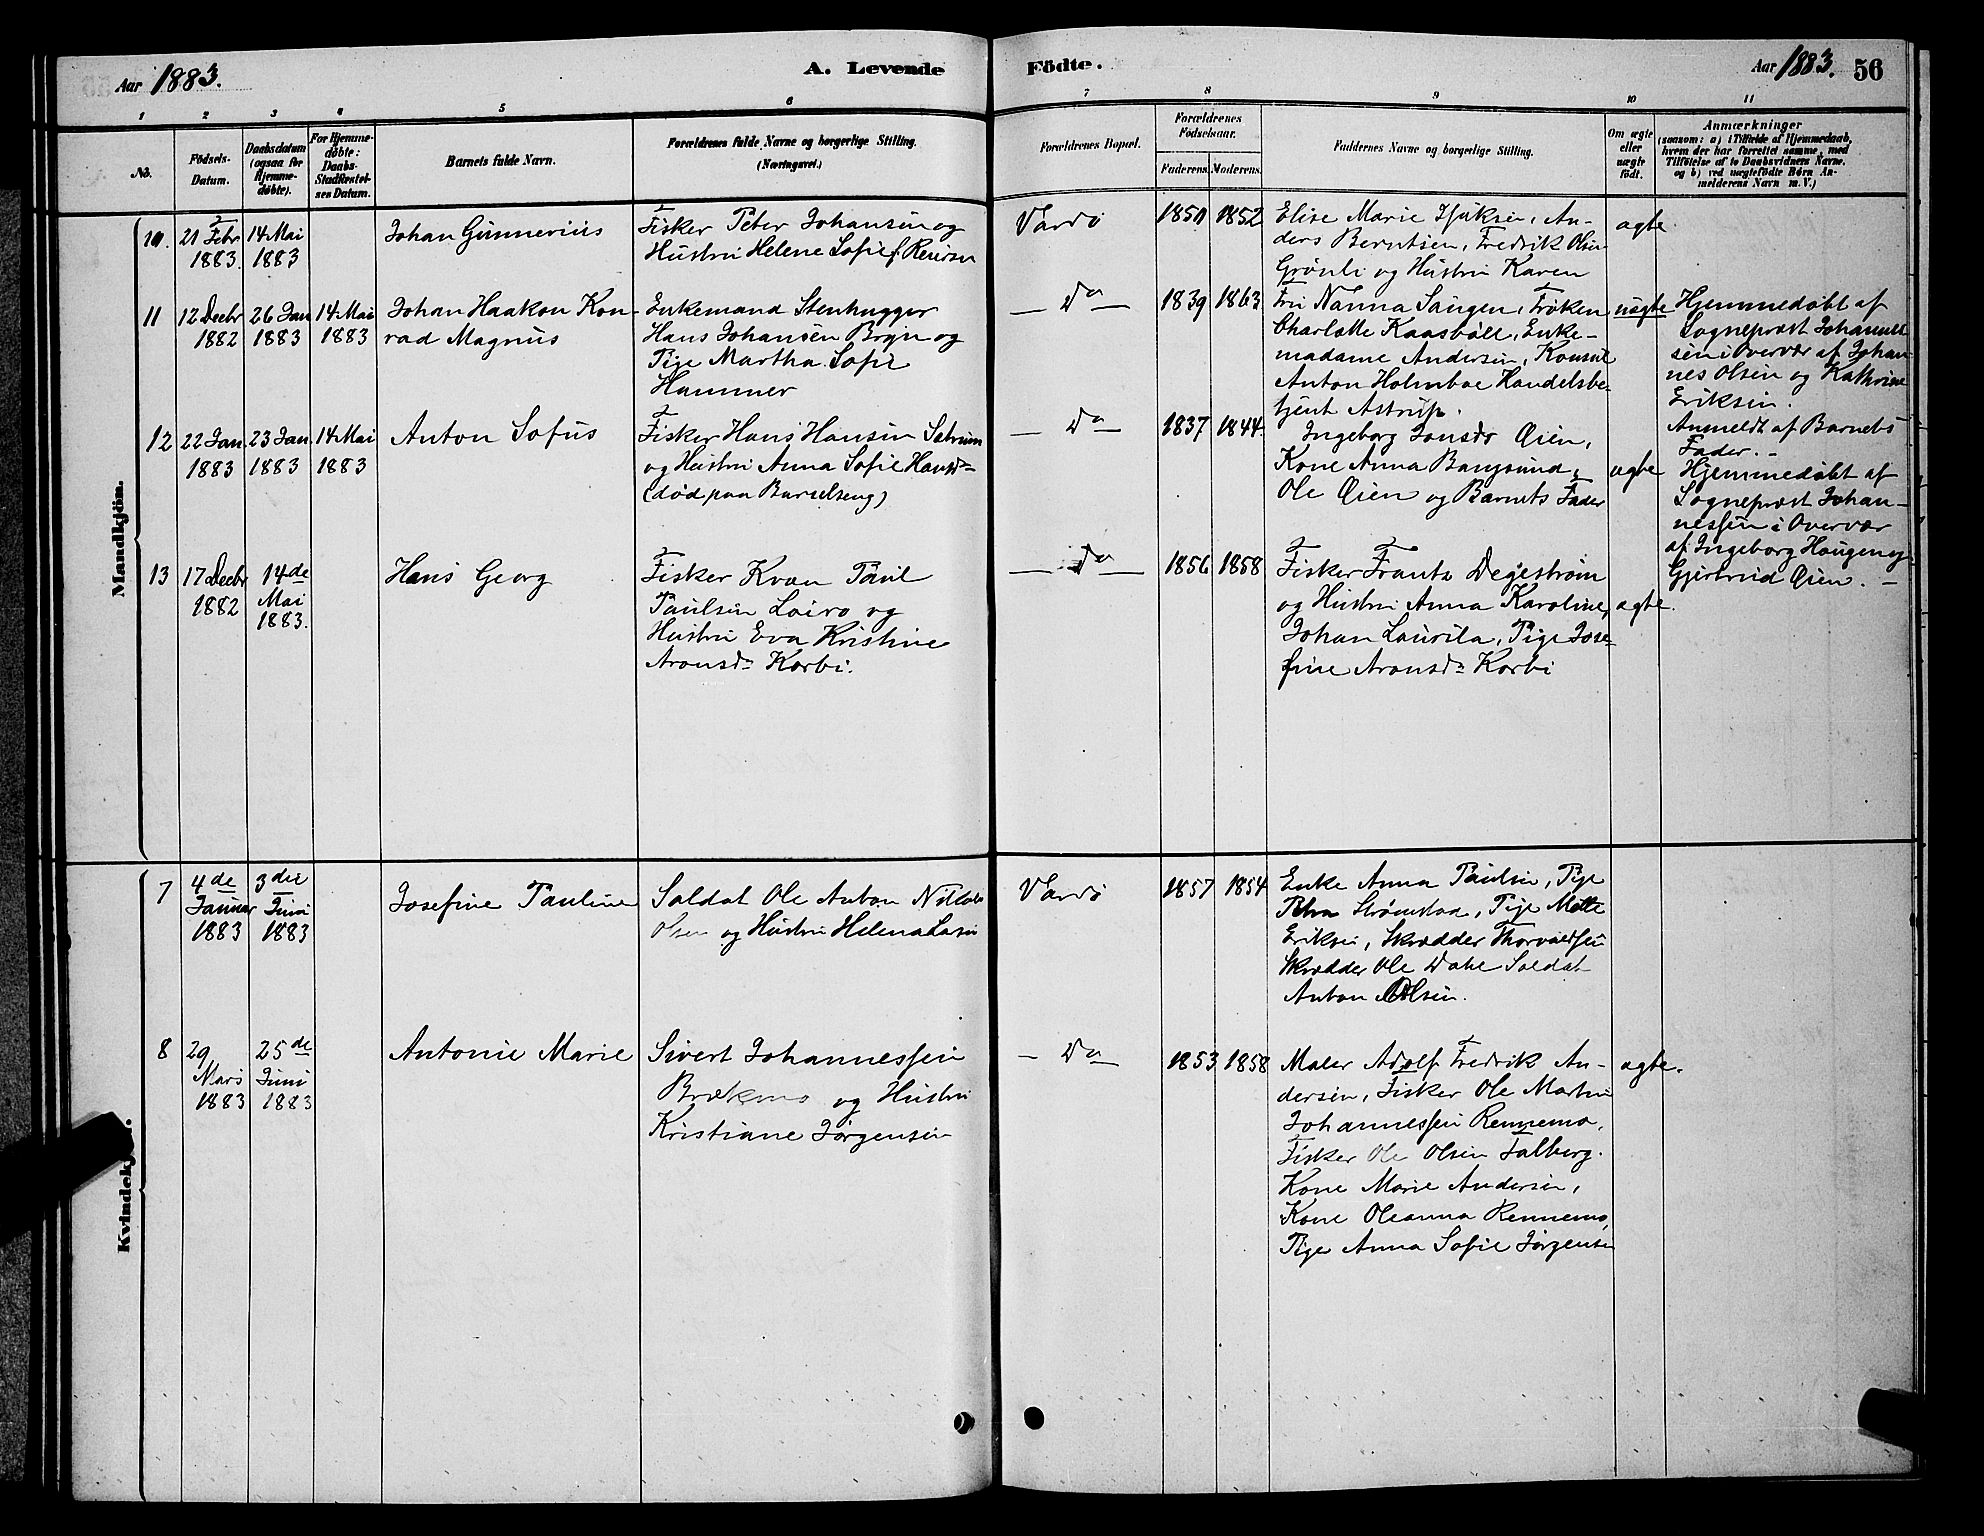 Aar 1883.
A. Levende
Födte.
Aar 1883. 56
1 2 3 4 5 6
7 8 9 10 11
No.
Födsels-
Datum.
Daabsdatum
(ogsaa for
Hjemme-
døbte).
For Hjemme-
døbte:
Daabs-
Stadfæstel-
ses Datum.
Barnets fulde Navn.
Forældrenes fulde Navne og borgerlige Stilling.
(Næringsvei.)
Forældrenes Bopæl.
Forældrenes
Födselsaar.
Faderens. Moderens.
Faddernes Navne og borgerlige Stilling.
Om ægte
eller
uægte
født.
Anmærkninger
(saasom: a) i Tilfælde af Hjemmedaab,
hvem der har forrettet samme, med
Tilföielse af to Daabsvidners Navne,
og b) ved uægtefödte Børn An-
melderens Navn m. V.)
Mandkjön.
10. 21 Febr 1883. 14 Mai 1883
Johan Gunnerius
Fisker Peter Johansen og
Hustru Helene Sofie f. Reiersn
Vardö
1850 1852
Elise Marie Isaksen, An-
ders Berntsen, Fredrik Olsen
Grönli og Hustru Karen
ægte
11 12 Decbr 1882 26 Jan 1883 14 Mai 1883
Johan Haakon Kon-
rad Magnus
Enkemand Stenhugger
Hans Johansen Bryn og
Pige Martha Sofie
Hammer
Do
1839 1863
Fru Nanna Saugen, Frøken
Charlotte Kaasböll, Enke-
madame Andersen, Konsul
Anton Holmboe Handelsbe-
tjent Astrup.
uægte
Hjemmedøbt af
Sogneprest Johannes
sen i Overvær af Johan
nes Olsen og Kathrine
Eriksen.
Anmeldt af Barnets
Fader. -
12 22 Jan. 1883 23 Jan. 1883 14 Mai 1883
Anton Sofus
Fisker Hans Hansen Sætrum
og Hustru Anna Sofie Hansd
(død paa Barselseng)
Do
1837 1844.
Ingeborg Jonsdr Øien,
Kone Anna Bangsund,
Ole Øien og Barnets Fader
ægte
Hjemmedøbt af
Sogneprest Johan-
nessen i Overvær
af Ingeborg Haugen og
Gjertrud Øien. -
13 17 Decbr 1882 14de Mai 1883.
Hans Georg
Fisker Kvæn Paul
Paulsen Lairo og
Hustru Eva Kristine
Aronsdr Korbi.
Do
1856 1858
Fisker Frants Degeström
og Hustru Anna Karoline,
Johan Laurila, Pige Jose-
fine Aronsdr Korbi
ægte.
Kvindekjön.
7 4de Januar 1883 3die Juni 1883
Josefine Pauline
Soldat Ole Anton
Olsen og Hustru Helena
Vardö
1857 1854
Enke Anna Paulsen, Pige
Petra Strømstad, Pige Mette
Eriksen, Skrædder Thorvaldsen
Skrædder Ole Dahl Soldat
Anton Olsen.
8 29 Mars 1883 25de Juni 1883
Antonie Marie
Sivert Johannessen
Brækmo og Hustru
Kristiane Jørgensen
Do
1853 1858
Maler Adolf Fredrik An-
dersen, Fisker Ole Martin
Johannessen Rennemo,
Fisker Ole Olsen Falberg.
Kone Marie Andersen,
Kone Oleanna Rennemo,
Pige Anna Sofie Jørgensen
ægte.